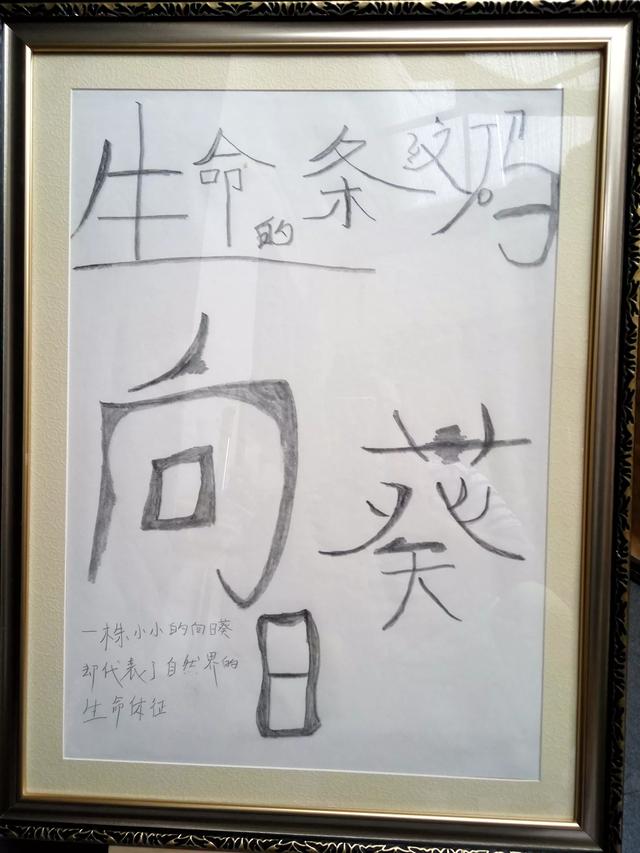 生命的条纹码
向日葵
一株小小的向日葵
却代表了自然界的
生命体征